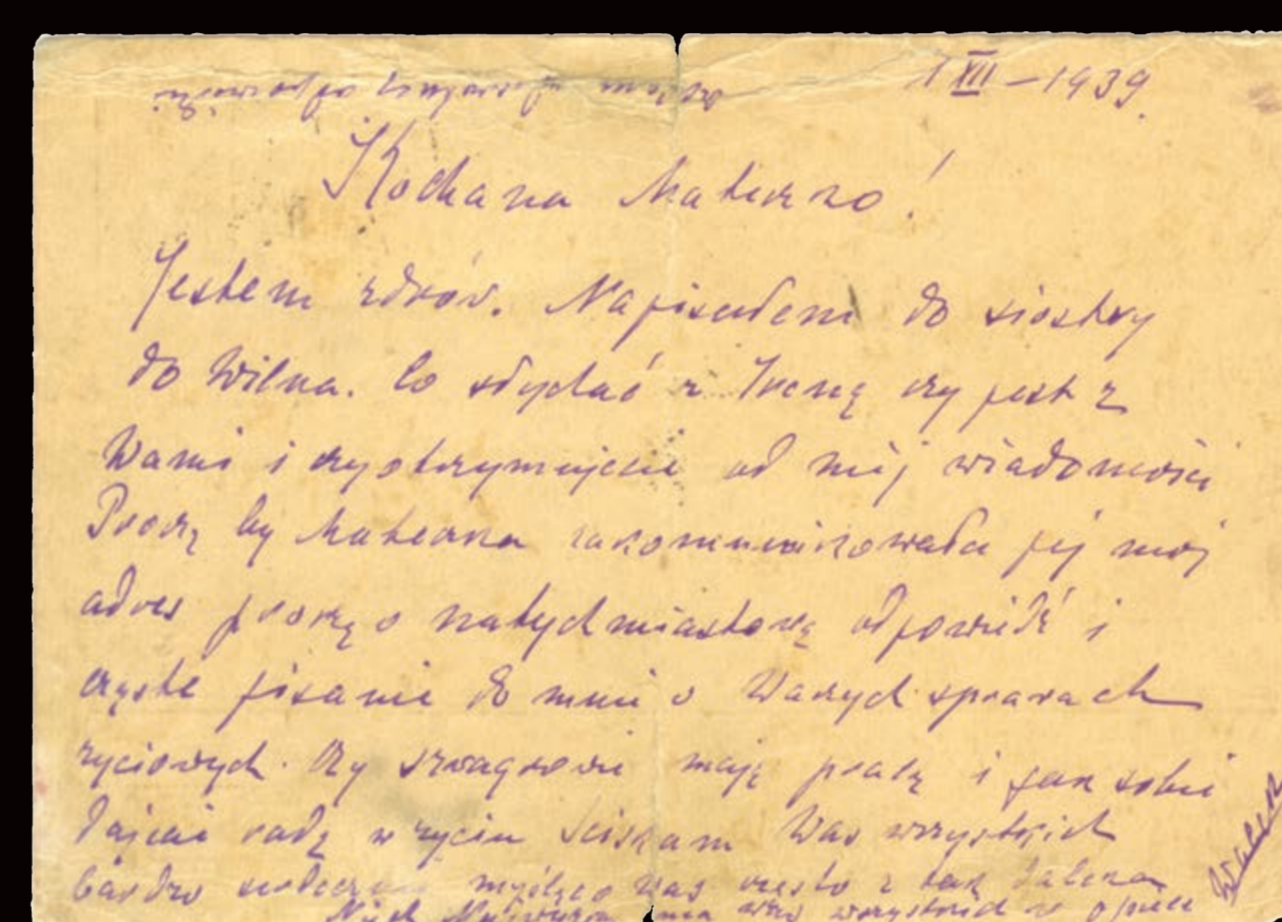 1 XII – 1939
Kochana Mateczko!
Jestem zdrów. Napisałem do siostry
do Wilna. Co słychać z Ireną czy jest z
Wami i czy otrzymujecie od niej wiadomości
Proszę by Mateczka zakomunikowała jej mój
adres proszę o natychmiastową odpowiedź i
częste pisanie do mnie o Waszych sprawach
życiowych. Czy szwagrowie mają pracę i jak sobie
dajecie radę w życiu Ściskam Was wszystkich
bardzo serdecznie myśląc o Was często z tak daleka
Niech Najwyższy ma Was wszystkich w opiece
Wacław